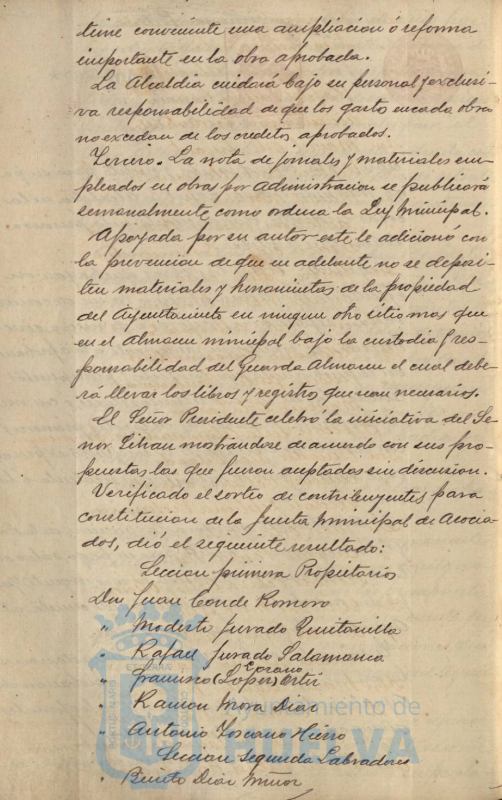 time conveniente una ampliacion ó reforma
importante en la obra aprobada.
La Alcaldia cuidará bajo su personal y exclusi-
va responsabilidad de que los gastos en cada obra
no excedan de los creditos aprobados.
Tercero. La nota de jornales y materiales em-
pleados en obras por administracion se publicará
semanalmente como ordena la Ley Municipal.
Apoyada por su autor este le adicionó con
la prevencion de que en adelante no se deposi-
ten materiales y herramientas de la propiedad
del Ayuntamiento en ningun otro sitio mas que
en el Almacen municipal bajo la custodia y res-
ponsabilidad del Guarda Almacen el cual debe-
rá llevar los libros y registros que sean necesarios.
El Señor Presidente celebró la iniciativa del Se-
ñor mostrandose de acuerdo con sus pro-
puestas las que fueron aceptadas sin discusion.
Verificado el sorteo de contribuyentes para
constitucion de la Junta Municipal de Asocia-
dos, dió el seguiente resultado:
Seccion primera Propietarios
Don Juan Conde Romero
" Modesto Jurado Quitanilla
" Rafael Jurado Salamanca
" Francisco (Lopez) Corano Ortiz
" Ramon Mora Diaz
" Antonio Toscano Hierro
Seccion segunda Labradores
" Benito Diaz Muñoz
Ayuntamiento de
HUELVA